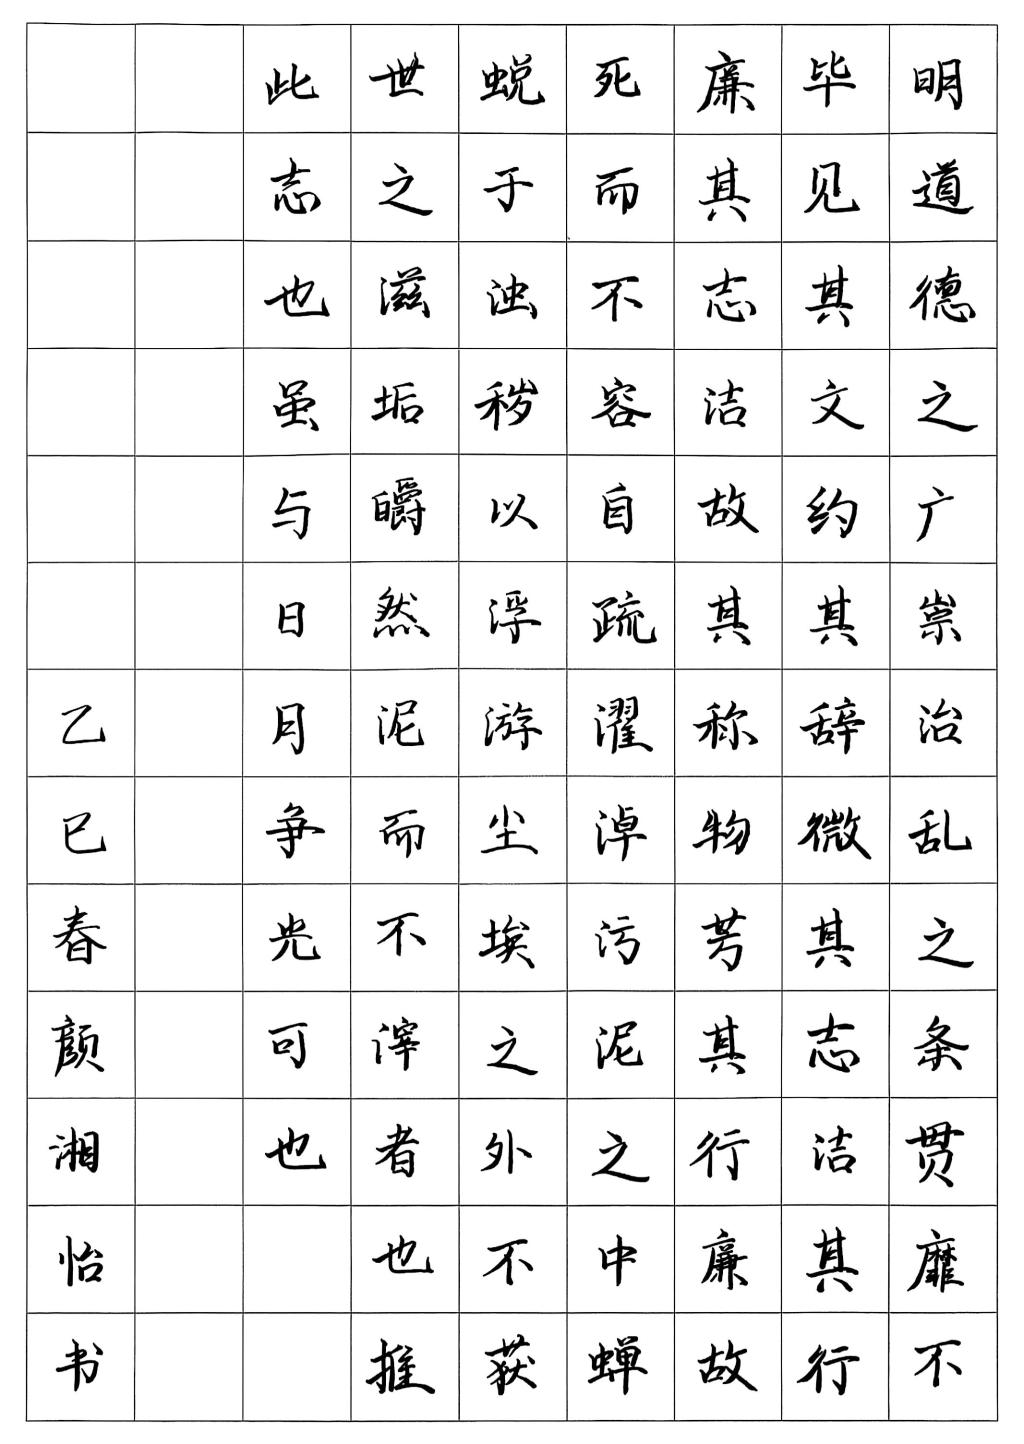 明道德之广崇治乱之条贯靡不
毕见其文约其辞微其志洁其行
廉其志洁故其称物芳其行廉故
死而不容自疏濯淖污泥之中蝉
蜕于浊秽以浮游尘埃之外不获
世之滋垢皭然泥而不滓者也推
此志也虽与日月争光可也
乙巳春颜湘怡书